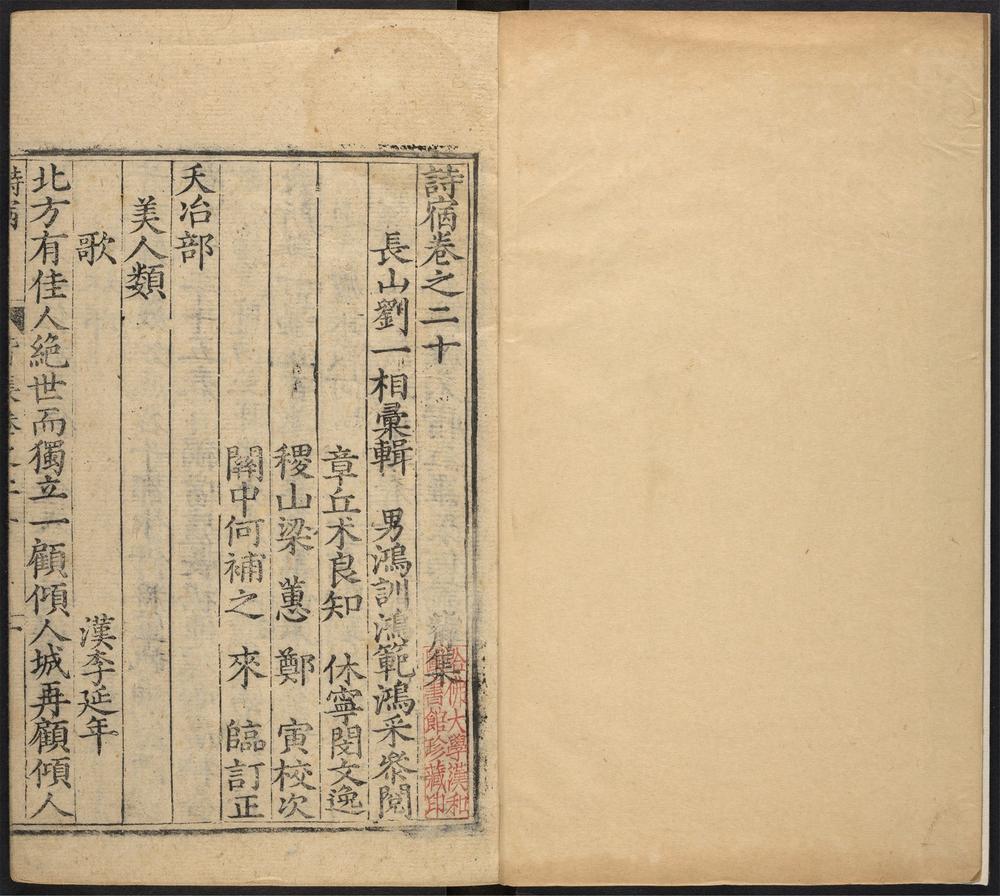 詩宿卷之二十
集
哈佛大學漢和
圖書館珍藏印
長山劉一相彙輯 男鴻訓鴻範鴻采叅閱
章丘术良知 休寧閔文逸
稷山梁蕙 鄭寅校次
關中何補之 來臨訂正
夭冶部
美人類
歌 漢李延年
北方有佳人絶世而獨立一顧傾人城再顧傾人